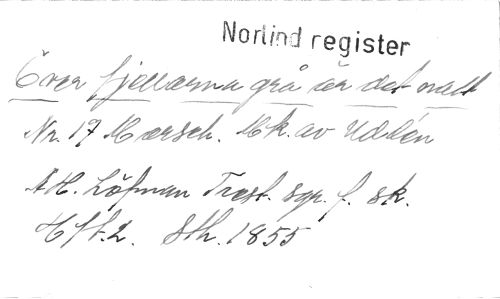 Norlind register
Över fjellarna grå är det matt
Nr. 17 Marsch. Mk. av Uddén
A H. Löfman Trest. sgr. f. sk.
Hft. 2. Sth. 1855